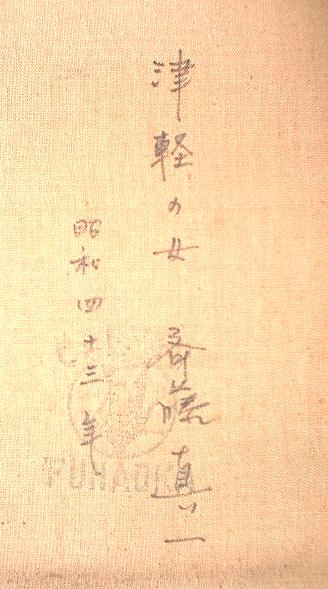 津軽の女 斎藤真一
昭和四十三年
FUNAOKA